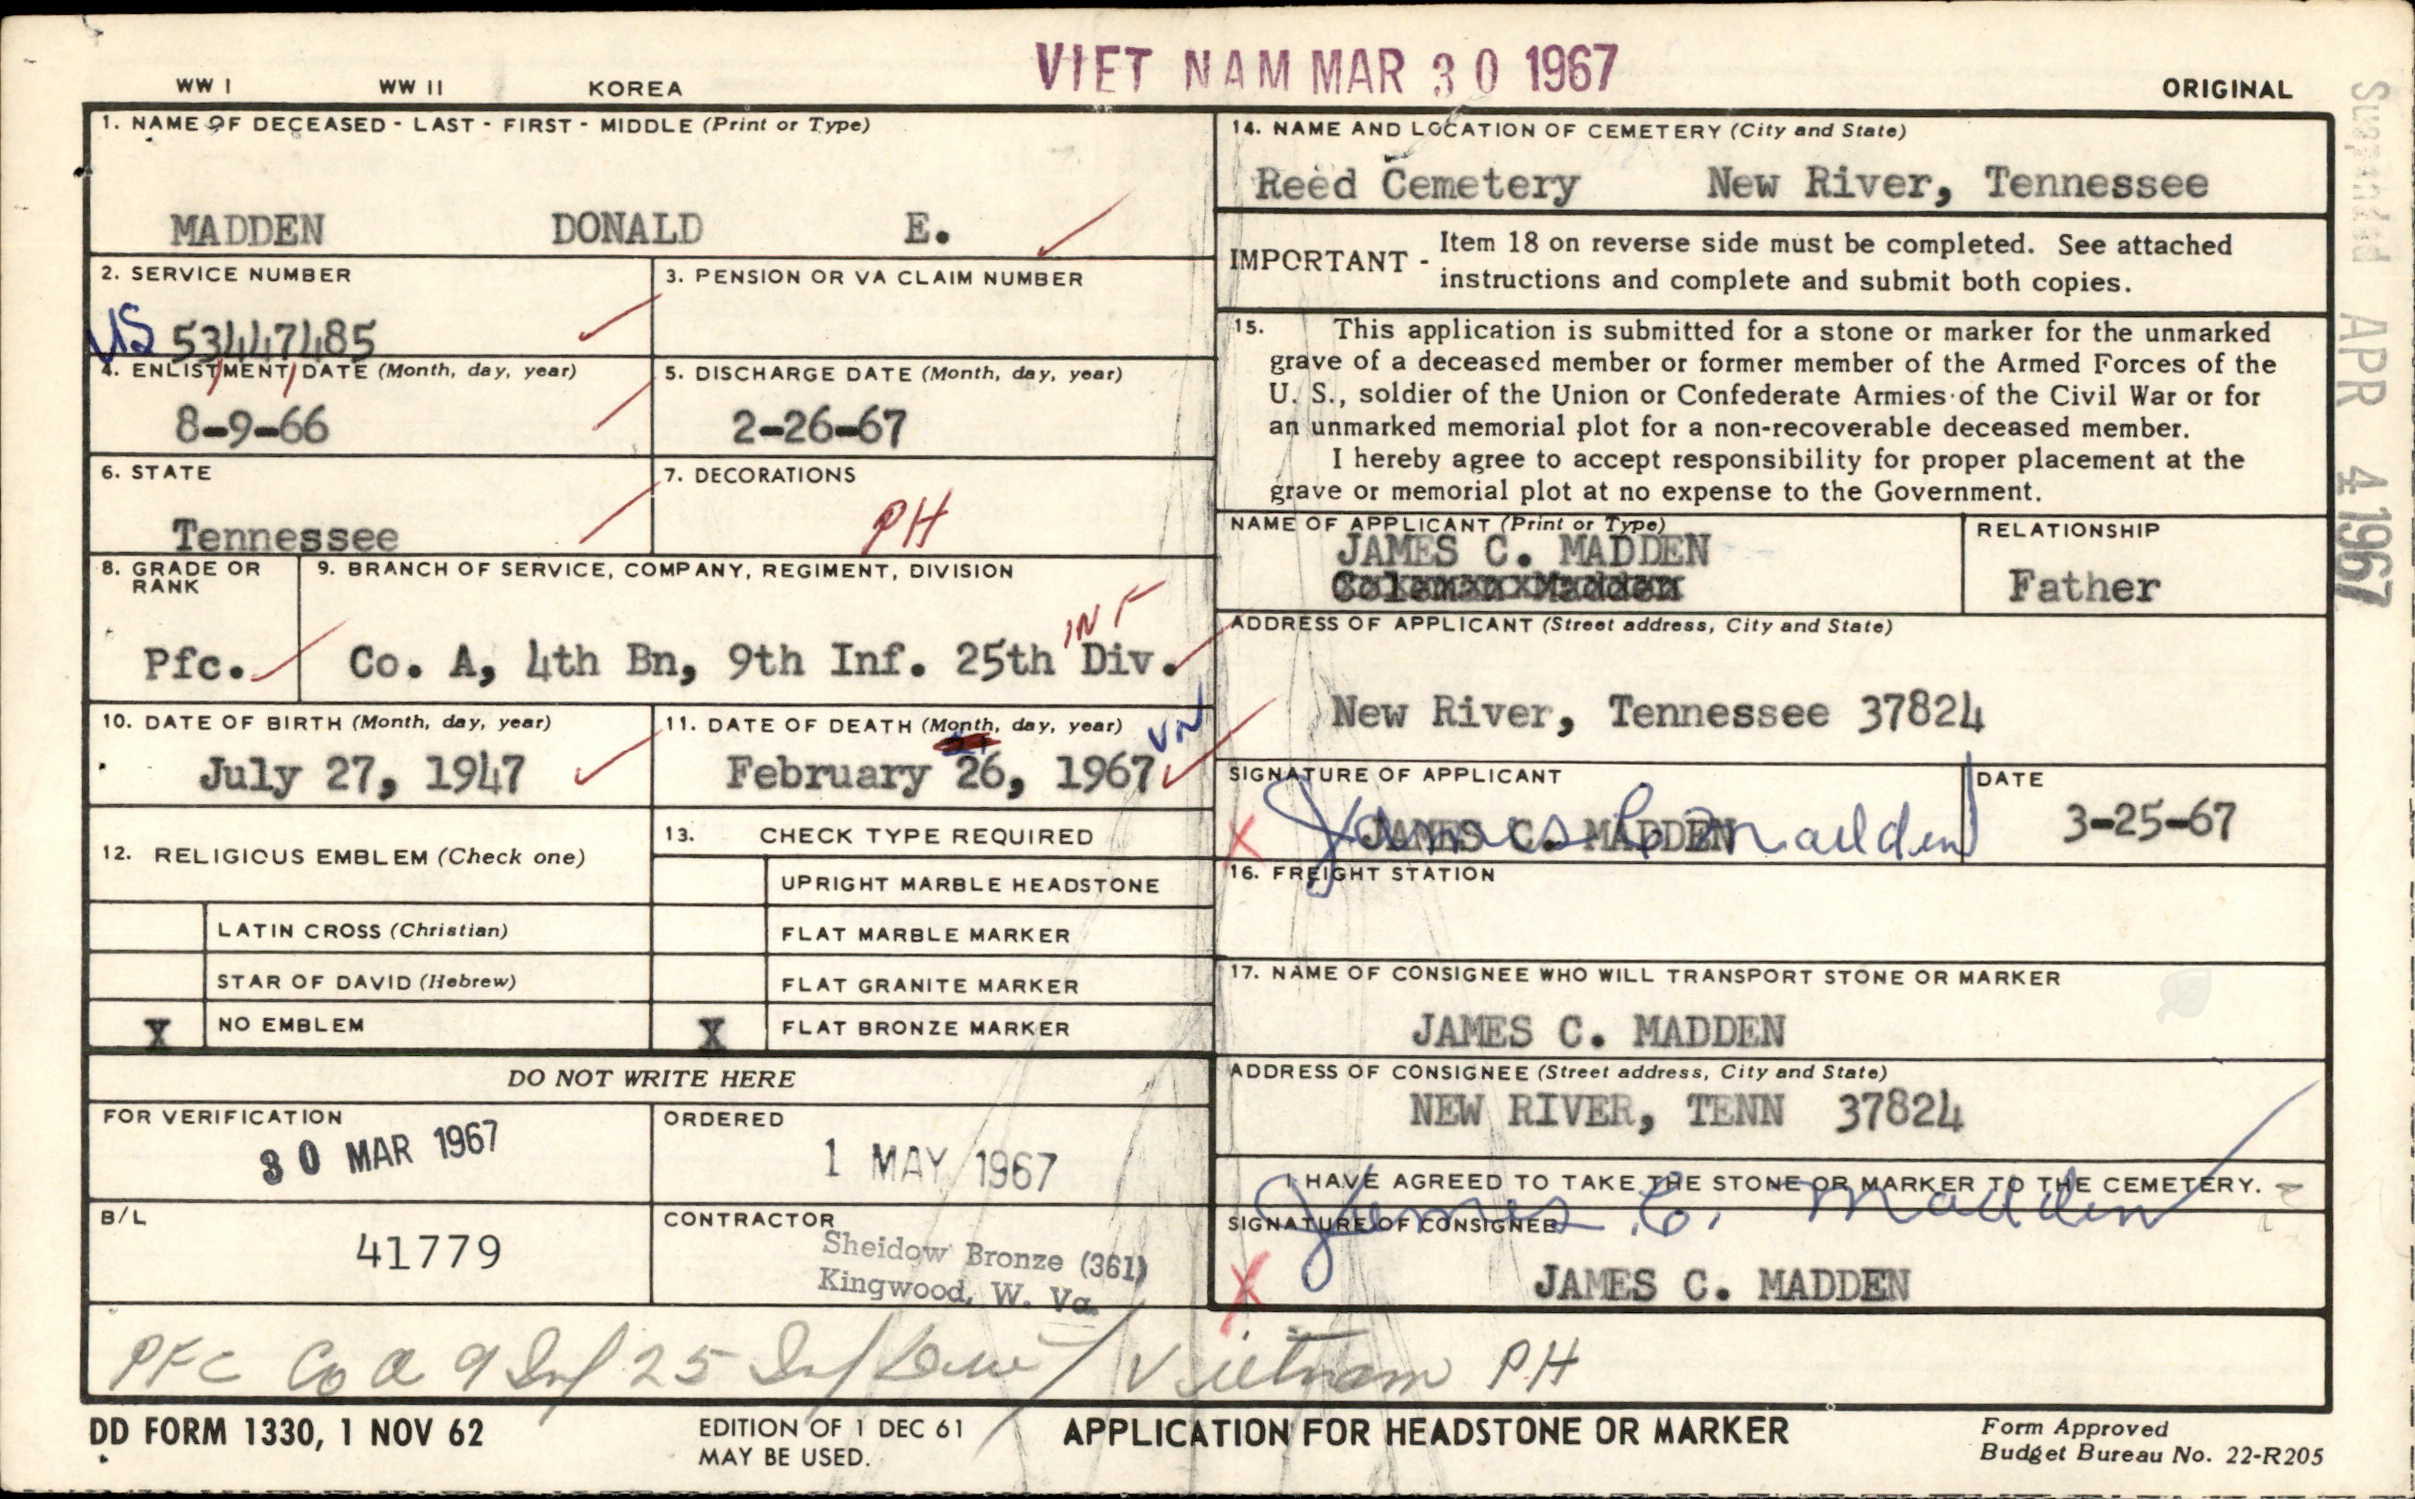 VIET NAM MAR 30 1967
WW I WW II KOREA ORIGINAL
1. NAME OF DECEASED - LAST - FIRST - MIDDLE (Print or Type)
MADDEN DONALD E.
2. SERVICE NUMBER
US 53447485
3. PENSION OR VA CLAIM NUMBER
4. ENLISTMENT DATE (Month, day, year)
8-9-66
5. DISCHARGE DATE (Month, day, year)
2-26-67
6. STATE
Tennessee
7. DECORATIONS
PH
8. GRADE OR
RANK
Pfc.
9. BRANCH OF SERVICE, COMPANY, REGIMENT, DIVISION
INF
Co. A, 4th Bn, 9th Inf. 25th Div.
10. DATE OF BIRTH (Month, day, year)
July 27, 1947
11. DATE OF DEATH (Month, day, year)
VN
February 26, 1967
12. RELIGIOUS EMBLEM (Check one)
LATIN CROSS (Christian)
STAR OF DAVID (Hebrew)
X NO EMBLEM
13. CHECK TYPE REQUIRED
UPRIGHT MARBLE HEADSTONE
FLAT MARBLE MARKER
FLAT GRANITE MARKER
X FLAT BRONZE MARKER
DO NOT WRITE HERE
FOR VERIFICATION
30 MAR 1967
ORDERED
1 MAY 1967
B/L
41779
CONTRACTOR
Sheidow Bronze (361)
Kingwood, W. Va.
14. NAME AND LOCATION OF CEMETERY (City and State)
Reed Cemetery New River, Tennessee
IMPORTANT - Item 18 on reverse side must be completed. See attached
instructions and complete and submit both copies.
15. This application is submitted for a stone or marker for the unmarked
grave of a deceased member or former member of the Armed Forces of the
U. S., soldier of the Union or Confederate Armies of the Civil War or for
an unmarked memorial plot for a non-recoverable deceased member.
I hereby agree to accept responsibility for proper placement at the
grave or memorial plot at no expense to the Government.
NAME OF APPLICANT (Print or Type)
JAMES C. MADDEN
Coleman Madden
RELATIONSHIP
Father
ADDRESS OF APPLICANT (Street address, City and State)
New River, Tennessee 37824
SIGNATURE OF APPLICANT
X James C. Madden
JAMES C. MADDEN
DATE
3-25-67
16. FREIGHT STATION
17. NAME OF CONSIGNEE WHO WILL TRANSPORT STONE OR MARKER
JAMES C. MADDEN
ADDRESS OF CONSIGNEE (Street address, City and State)
NEW RIVER, TENN 37824
I HAVE AGREED TO TAKE THE STONE OR MARKER TO THE CEMETERY.
James C. Madden
SIGNATURE OF CONSIGNEE
X JAMES C. MADDEN
PFC Co A 9 Inf 25 Inf Div / Vietnam PH
DD FORM 1330, 1 NOV 62
EDITION OF 1 DEC 61
MAY BE USED.
APPLICATION FOR HEADSTONE OR MARKER
Form Approved
Budget Bureau No. 22-R205
APR 4 1967